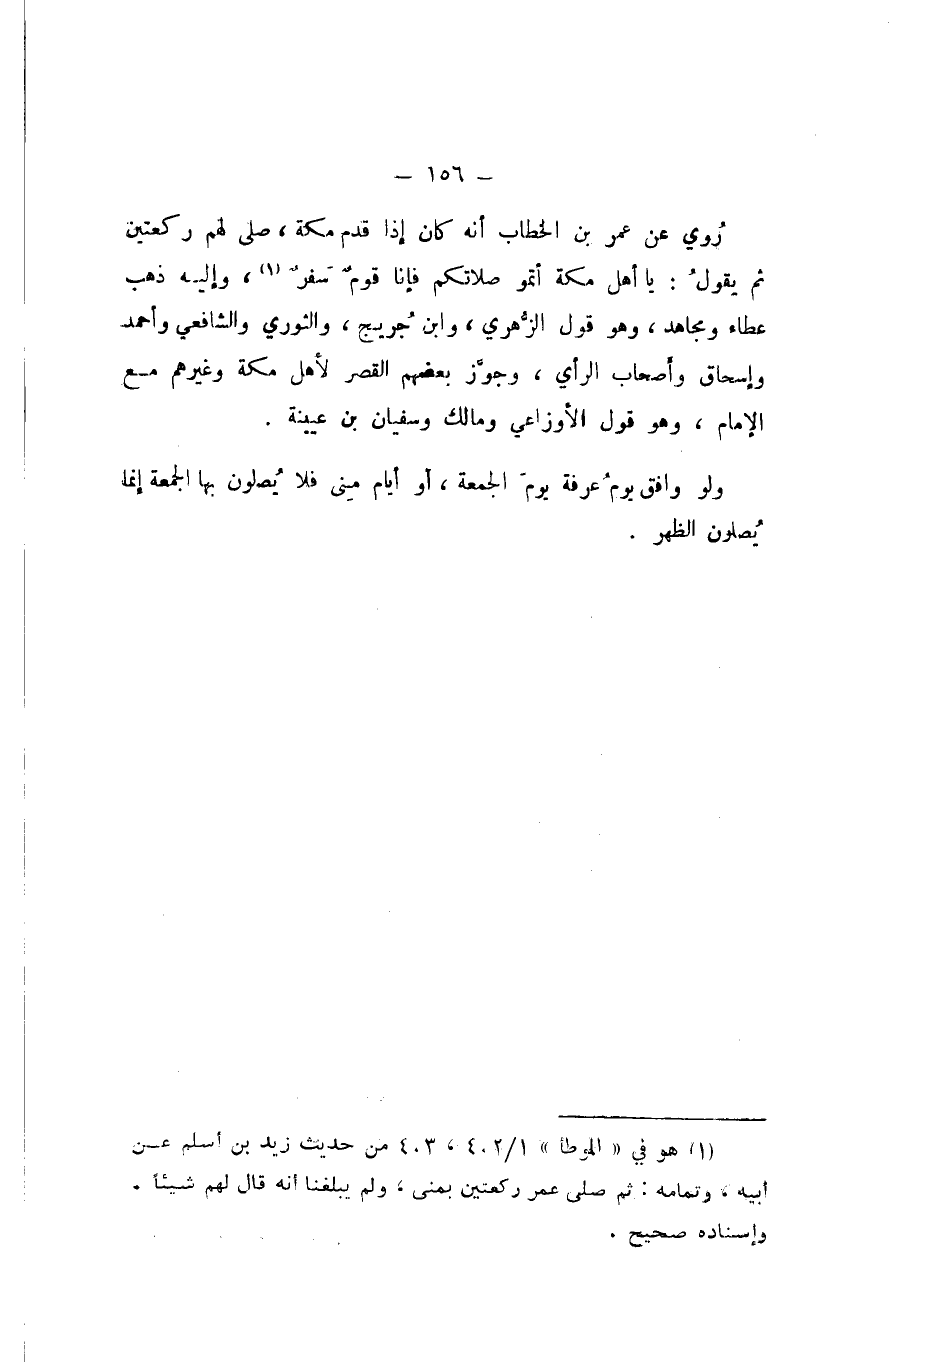 – ١٥٦ –
رُوي عن عمر بن الخطاب أنه كان إذا قدم مكة ، صلى لهم ركعتين
ثم يقولُ : يا أهل مكة أتمو صلاتكم فإنا قومٌ سَفرٌ (١) ، وإليه ذهب
عطاء ومجاهد ، وهو قول الزُّهري ، وابن جُريج ، والثوري والشافعي وأحمد
وإسحاق وأصحاب الرأي ، وجوَّز بعضهم القصر لأهل مكة وغيرهم مع
الإمام ، وهو قول الأوزاعي ومالك وسفيان بن عيينة .
ولو وافق يومُ عرفة يومَ الجمعة ، أو أيام مِنى فلا يُصلون بها الجمعة إنما
يُصلون الظهر .
(١) هو في « الموطأ » ٤٠٢/١ ، ٤٠٣ من حديث زيد بن أسلم عن
أبيه ، وتمامه : ثم صلى عمر ركعتين بمنى ، ولم يبلغنا أنه قال لهم شيئاً .
وإسناده صحيح .